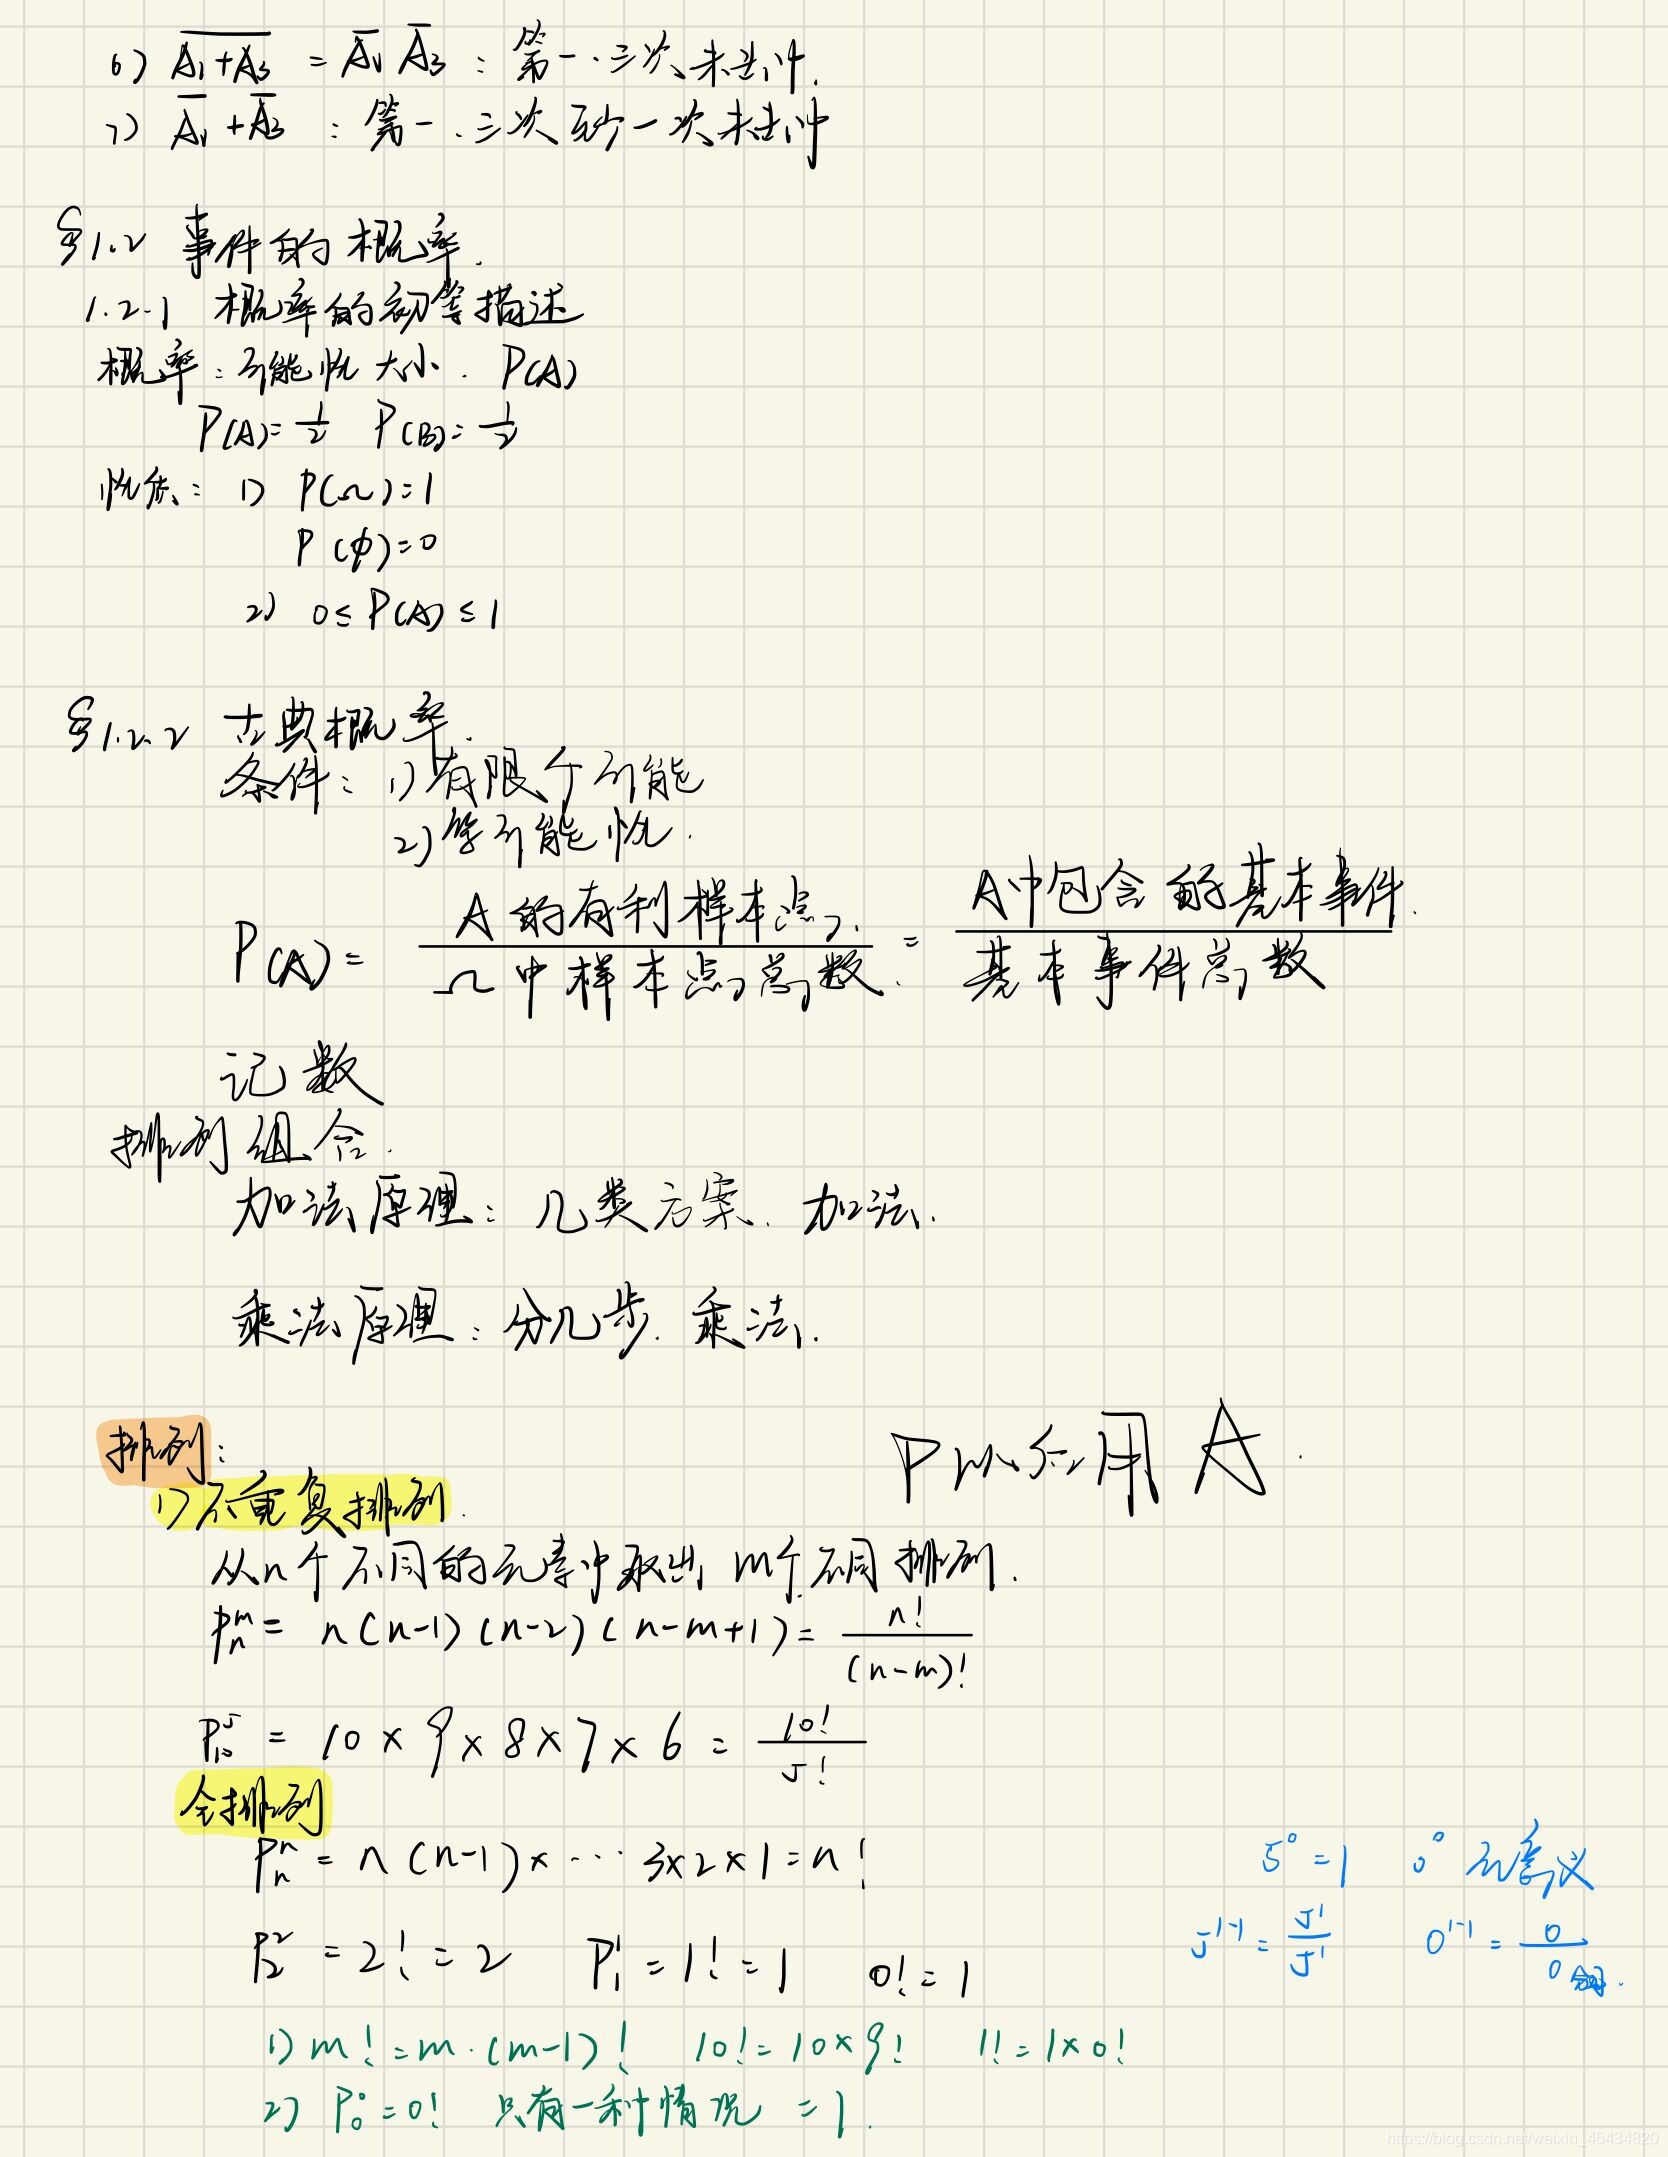 6) $\overline{A_1+A_3} = \overline{A_1}\,\overline{A_3}$ : 第一.三次未击中.
7) $\overline{A_1}+\overline{A_3}$ : 第一.三次至少一次未击中
§1.2 事件的概率.
1.2.1 概率的初等描述
概率:可能性大小. P(A)
P(A)=1/2 P(B)=1/2
性质: 1) P(Ω)=1
P(φ)=0
2) 0≤P(A)≤1
§1.2.2 古典概率.
条件: 1)有限个可能
2)等可能性.
$P(A)=\frac{A的有利样本点.}{Ω中样本点总数.}=\frac{A中包含的基本事件.}{基本事件总数}$
记数
排列组合.
加法原理: 几类方案. 加法.
乘法原理: 分几步. 乘法.
排列:
P以后用A.
1)不重复排列.
从n个不同的元素中取出m个不同排列.
$P_n^m = n(n-1)(n-2)(n-m+1)=\frac{n!}{(n-m)!}$
$P_{10}^5 = 10×9×8×7×6=\frac{10!}{5!}$
全排列
$P_n^n = n(n-1)×\cdots 3×2×1=n!$
$5^0=1$ $0^0$ 无意义
$P_2^2 = 2! = 2$ $P_1^1 = 1! = 1$ $0! = 1$
$5^{1-1}=\frac{5^1}{5^1}$ $0^{1-1}=\frac{0}{0}$
1) m!=m·(m-1)! 10!=10×9! 1!=1×0!
2) $P_0^0=0!$ 只有一种情况 =1.
https://blog.csdn.net/weixin_45434820